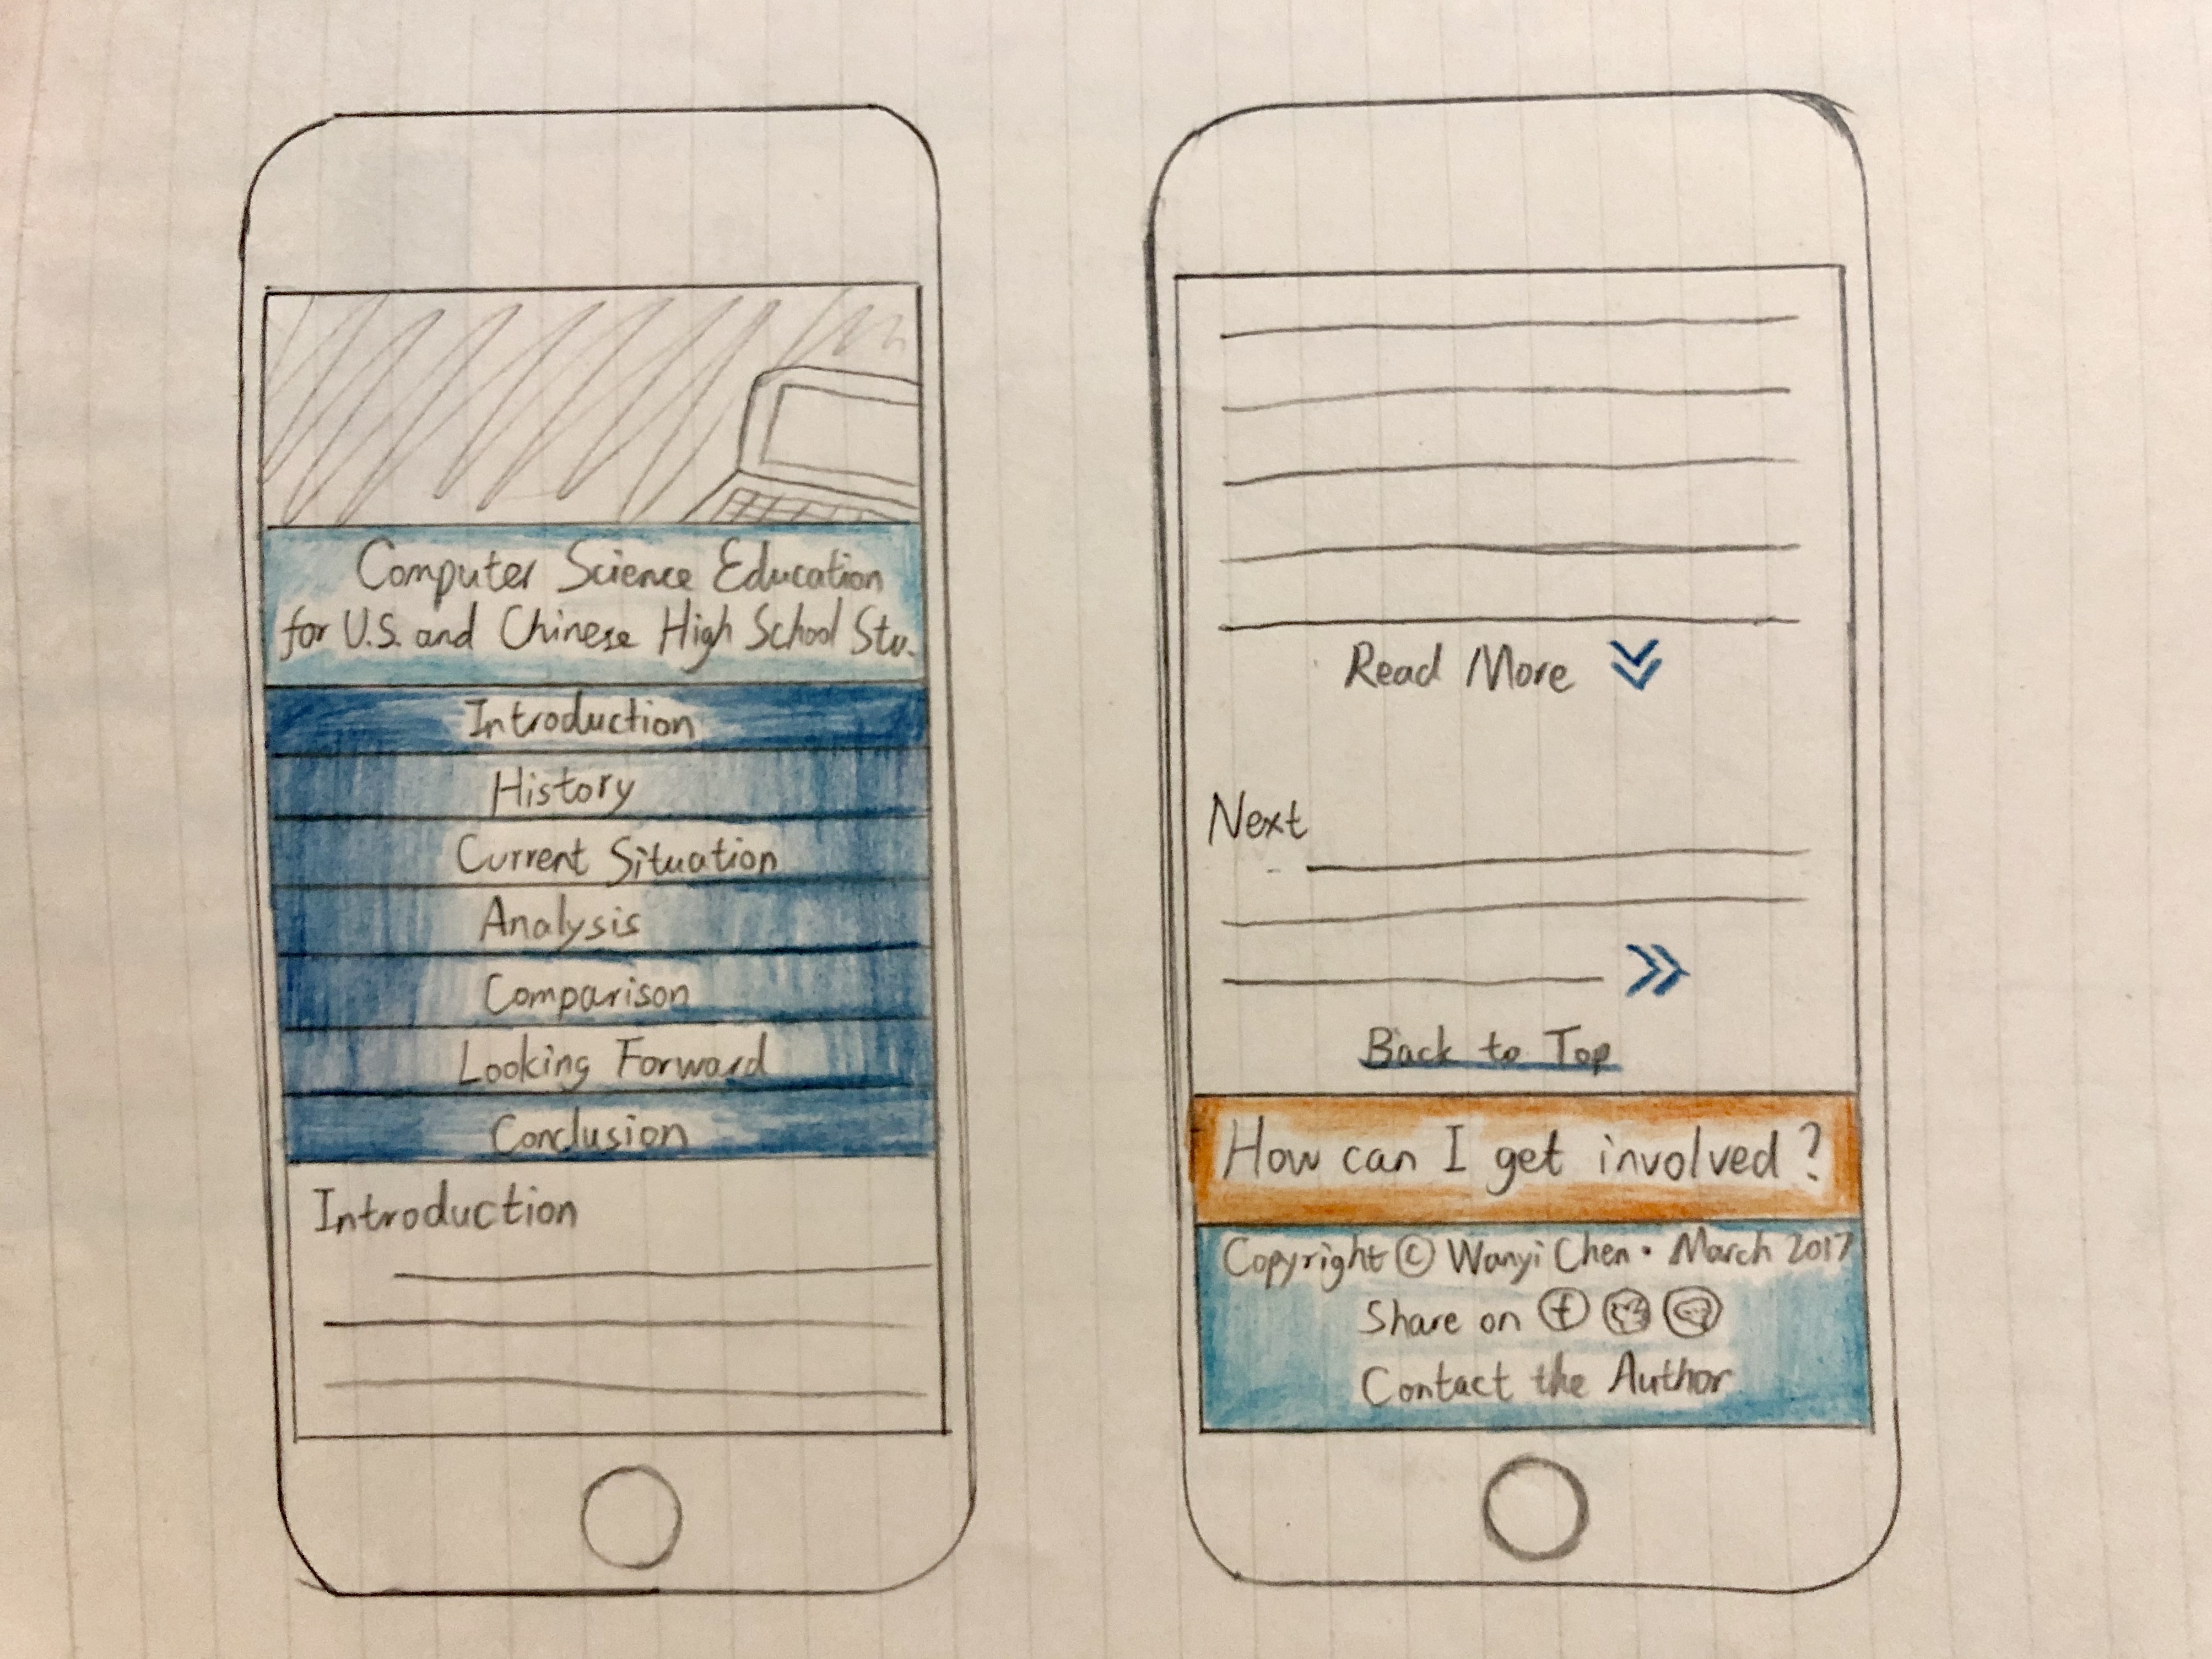 Computer Science Education
for U.S. and Chinese High School Stu.
Introduction
History
Current Situation
Analysis
Comparison
Looking Forward
Conclusion
Introduction
Read More
Next
Back to Top
How can I get involved?
Copyright © Wanyi Chen • March 2017
Share on f
Contact the Author